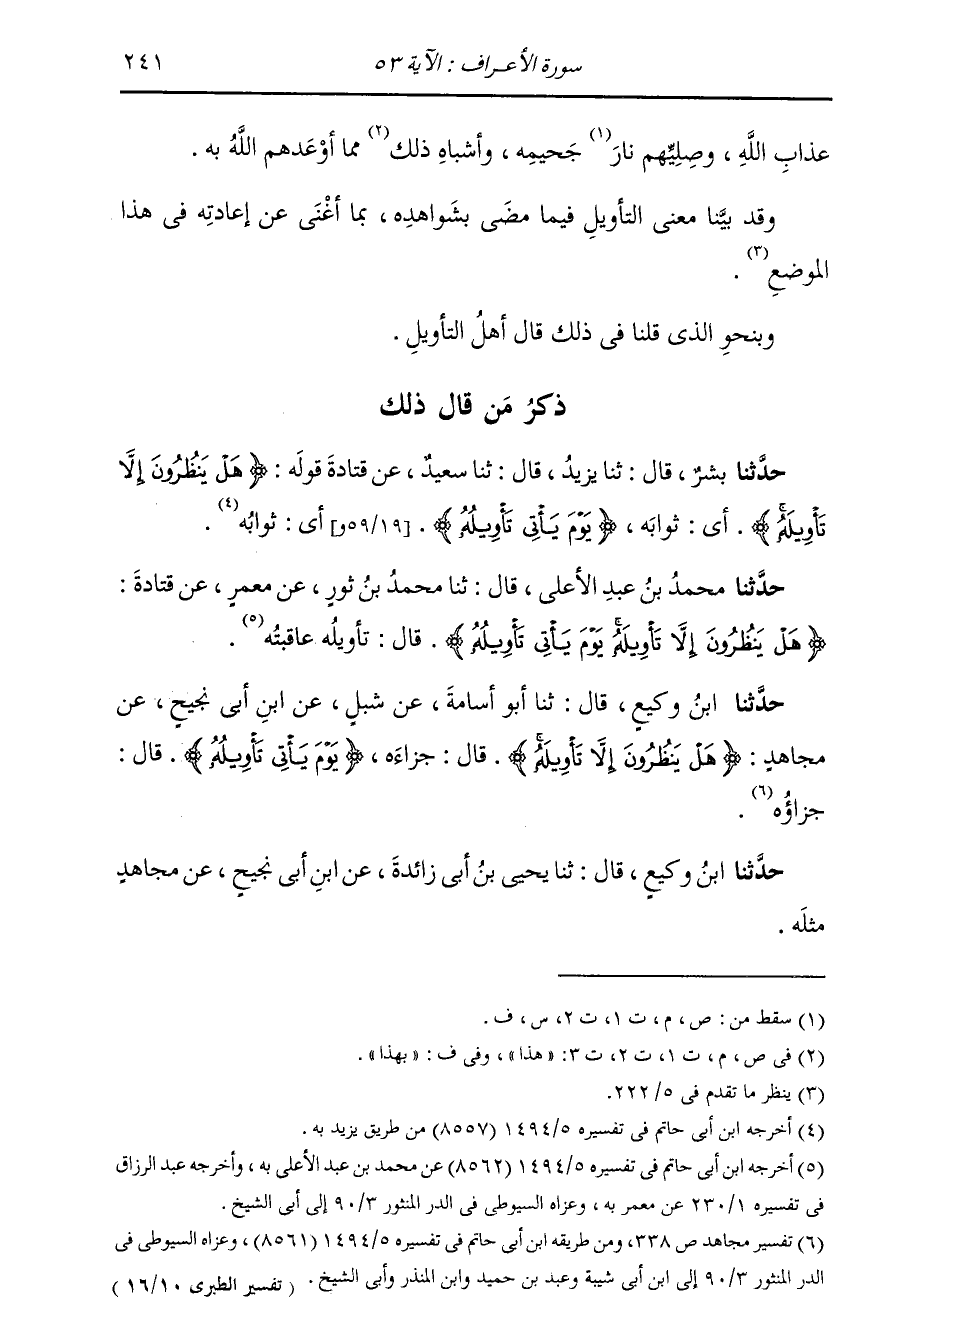 سورة الأعراف : الآية ٥٣ ٢٤١
عذابِ اللَّهِ ، وصِلِيِّهم نارَ(١) جَحيمِه ، وأشباهِ ذلك(٢) مما أوْعَدهم اللَّهُ به .
وقد بيَّنا معنى التأويلِ فيما مضَى بشَواهدِه ، بما أغْنَى عن إعادتِه فى هذا
الموضعِ(٣) .
وبنحوِ الذى قلنا فى ذلك قال أهلُ التأويلِ .
ذكرُ مَن قال ذلك
حدَّثنا بشرٌ ، قال : ثنا يزيدُ ، قال : ثنا سعيدٌ ، عن قتادةَ قولَه : ﴿ هَلْ يَنظُرُونَ إِلَّا
تَأْوِيلَهُۥۚ ﴾ . أى : ثوابَه ، ﴿ يَوْمَ يَأْتِى تَأْوِيلُهُۥ ﴾ . [٥٩/١٩و] أى : ثوابُه(٤) .
حدَّثنا محمدُ بنُ عبدِ الأعلى ، قال : ثنا محمدُ بنُ ثورٍ ، عن معمرٍ ، عن قتادةَ :
﴿ هَلْ يَنظُرُونَ إِلَّا تَأْوِيلَهُۥۚ يَوْمَ يَأْتِى تَأْوِيلُهُۥ ﴾ . قال : تأويلُه عاقبتُه(٥) .
حدَّثنا ابنُ وكيعٍ ، قال : ثنا أبو أسامةَ ، عن شبلٍ ، عن ابنِ أبى نجيحٍ ، عن
مجاهدٍ : ﴿ هَلْ يَنظُرُونَ إِلَّا تَأْوِيلَهُۥۚ ﴾ . قال : جزاءَه ، ﴿ يَوْمَ يَأْتِى تَأْوِيلُهُۥ ﴾ . قال :
جزاؤُه(٦) .
حدَّثنا ابنُ وكيعٍ ، قال : ثنا يحيى بنُ أبى زائدةَ ، عن ابنِ أبى نجيحٍ ، عن مجاهدٍ
مثلَه .
(١) سقط من : ص ، م ، ت ١، ت ٢، س ، ف .
(٢) فى ص ، م ، ت ١، ت ٢، ت ٣: « هذا » ، وفى ف : « بهذا » .
(٣) ينظر ما تقدم فى ٥/ ٢٢٢.
(٤) أخرجه ابن أبى حاتم فى تفسيره ١٤٩٤/٥ (٨٥٥٧) من طريق يزيد به .
(٥) أخرجه ابن أبى حاتم فى تفسيره ١٤٩٤/٥ (٨٥٦٢) عن محمد بن عبد الأعلى به ، وأخرجه عبد الرزاق
فى تفسيره ٢٣٠/١ عن معمر به ، وعزاه السيوطى فى الدر المنثور ٩٠/٣ إلى أبى الشيخ .
(٦) تفسير مجاهد ص ٣٣٨، ومن طريقه ابن أبى حاتم فى تفسيره ١٤٩٤/٥ (٨٥٦١) ، وعزاه السيوطى فى
الدر المنثور ٩٠/٣ إلى ابن أبى شيبة وعبد بن حميد وابن المنذر وأبى الشيخ . ( تفسير الطبرى ١٦/١٠ )